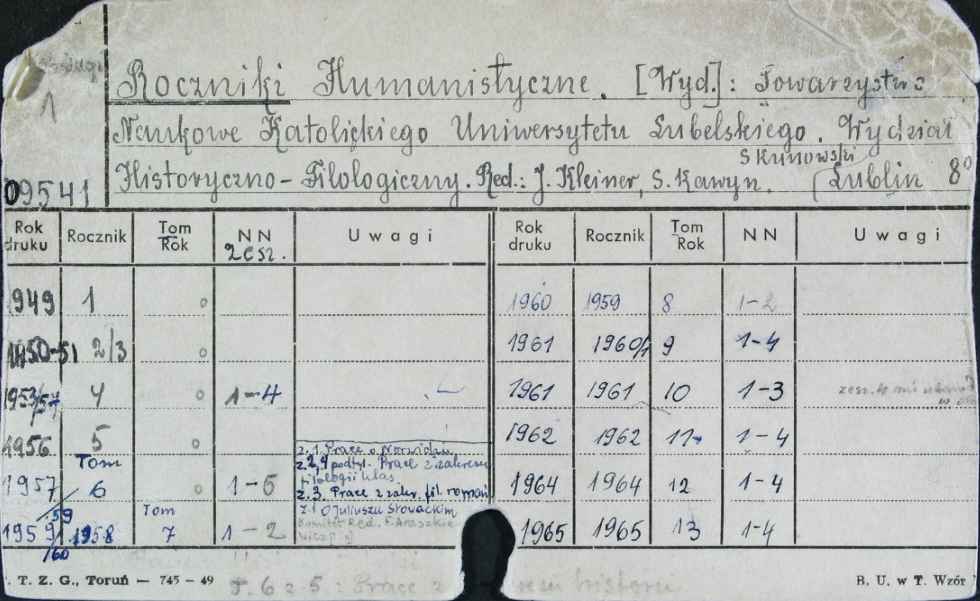 1
Roczniki Humanistyczne. [Wyd.]: Towarzystwo
Naukowe Katolickiego Uniwersytetu Lubelskiego. Wydział
Skunowski
Historyczno-Filologiczny. Red.: J. Kleiner, S. Kawyn. Lublin 8°
09541
Rok druku Rocznik Tom Rok NN 2 esz. Uwagi Rok druku Rocznik Tom Rok NN Uwagi
1949 1 o 1960 1959 8 1-2
1950-51 2/3 o 1961 1960/1 9 1-4
1953/57 4 o 1-4 1961 1961 10 1-3 zesz. 4
1956 5 o 1962 1962 11 1-4
z. 1. Prace o Norwidzie
z. 2, 4 podtyt. Prace z zakresu
filologii klas.
z. 3. Prace z zakr. fil. roman
Tom
1957/59 6 o 1-5 1964 1964 12 1-4
z. 1 O Juliuszu Słowackim
Komitet Red.
Tom
1959/60 1958 7 1-2 1965 1965 13 1-4
T. Z. G., Toruń — 745 — 49
T. 6 z 5.: Prace z historii
B. U. w T. Wzór